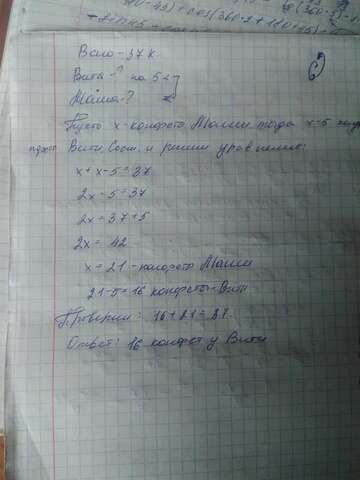 Всего - 37 к
Витя - ? на 5 <
Маша - ?
Пусть x - конфеты Маши тогда x-5
Вити Сост. и решим уравнение:
x + x - 5 = 37
2x - 5 = 37
2x = 37 + 5
2x = 42
x = 21 - конфета Маши
21-5 = 16 конфеты - Вити
Проверим: 16 + 21 = 37.
Ответ: 16 конфет у Вити